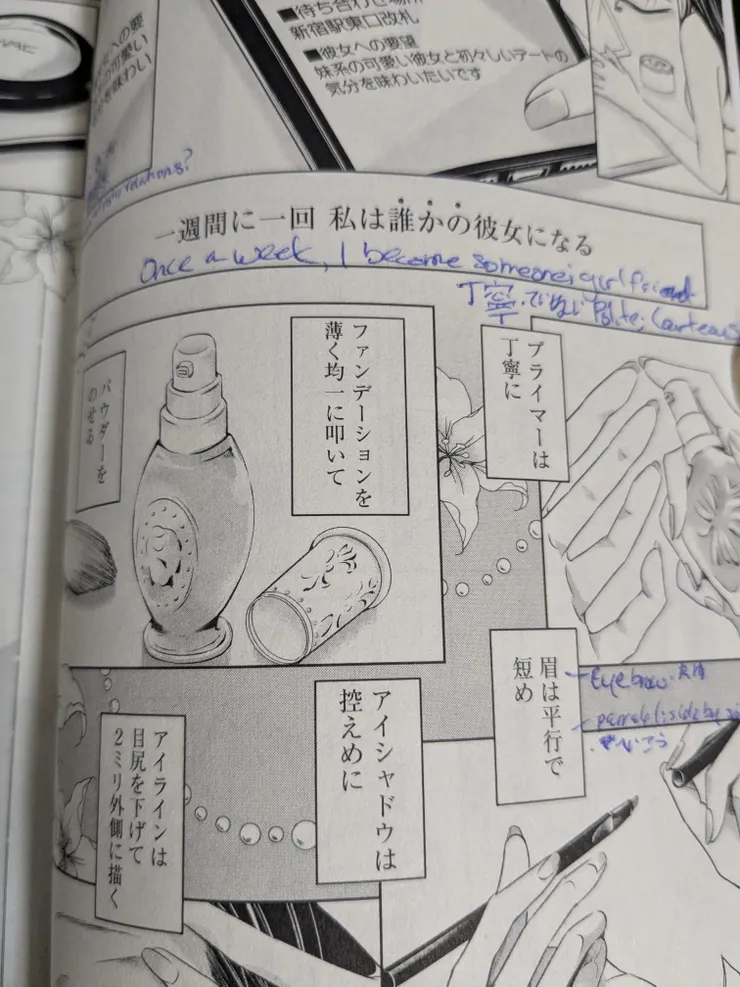 MAC
■待ち合わせ場所
新宿駅東口改札
■彼女への要望
妹系の可愛い彼女と初々しいデートの
気分を味わいたいです
一週間に一回 私は誰かの彼女になる
Once a week, I become someones girlfriend
丁寧 ていねい Polite; Courteous
プライマーは
丁寧に
ファンデーションを
薄く均一に叩いて
パウダーを
のせる
眉は平行で
短め
Eyebrow
アイシャドウは
控えめに
へいこう
アイラインは
目尻を下げて
2ミリ外側に描く